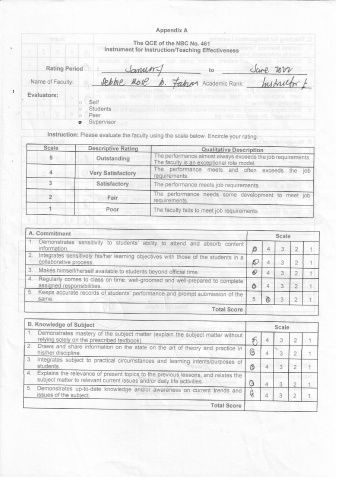 Appendix A
The QCE of the NBC No. 461
Instrument for Instruction/Teaching Effectiveness
Rating Period : January to June 2022
Name of Faculty: Debbie Rose Academic Rank: Instructor I
Evaluators:
Self
Students
Peer
Supervisor
Instruction: Please evaluate the faculty using the scale below. Encircle your rating.
Scale Descriptive Rating Qualitative Description
5 Outstanding The performance almost always exceeds the job requirements.
The faculty is an exceptional role model.
4 Very Satisfactory The performance meets and often exceeds the job
requirements.
3 Satisfactory The performance meets job requirements.
2 Fair The performance needs some development to meet job
requirements.
1 Poor The faculty fails to meet job requirements.
A. Commitment Scale
1. Demonstrates sensitivity to students' ability to attend and absorb content
information. 5 4 3 2 1
2. Integrates sensitively his/her learning objectives with those of the students in a
collaborative process. 5 4 3 2 1
3. Makes himself/herself available to students beyond official time. 5 4 3 2 1
4. Regularly comes to class on time, well-groomed and well-prepared to complete
assigned responsibilities. 5 4 3 2 1
5. Keeps accurate records of students' performance and prompt submission of the
same. 5 4 3 2 1
Total Score
B. Knowledge of Subject Scale
1. Demonstrates mastery of the subject matter (explain the subject matter without
relying solely on the prescribed textbook). 5 4 3 2 1
2. Draws and share information on the state on the art of theory and practice in
his/her discipline. 5 4 3 2 1
3. Integrates subject to practical circumstances and learning intents/purposes of
students. 5 4 3 2 1
4. Explains the relevance of present topics to the previous lessons, and relates the
subject matter to relevant current issues and/or daily life activities. 5 4 3 2 1
5. Demonstrates up-to-date knowledge and/or awareness on current trends and
issues of the subject. 5 4 3 2 1
Total Score